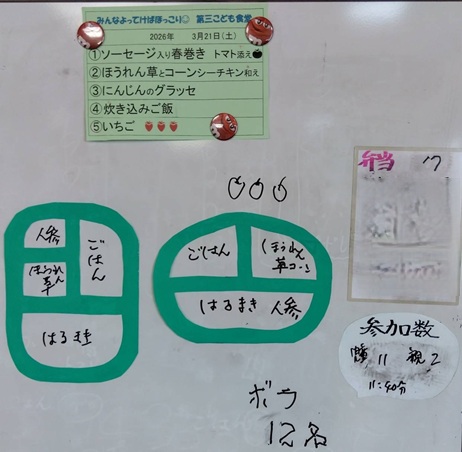 みんなよってけばぽっこり☺ 第三こども食堂
2026年 3月21日(土)
①ソーセージ入り春巻き トマト添え
②ほうれん草とコーンシーチキン和え
③にんじんのグラッセ
④炊き込みご飯
⑤いちご
弁当 17
人参
ごはん
ほうれん草
はるまき
ごはん
ほうれん
草コーン
はるまき 人参
参加数
11 親 2
11:40分
ボラ
12名